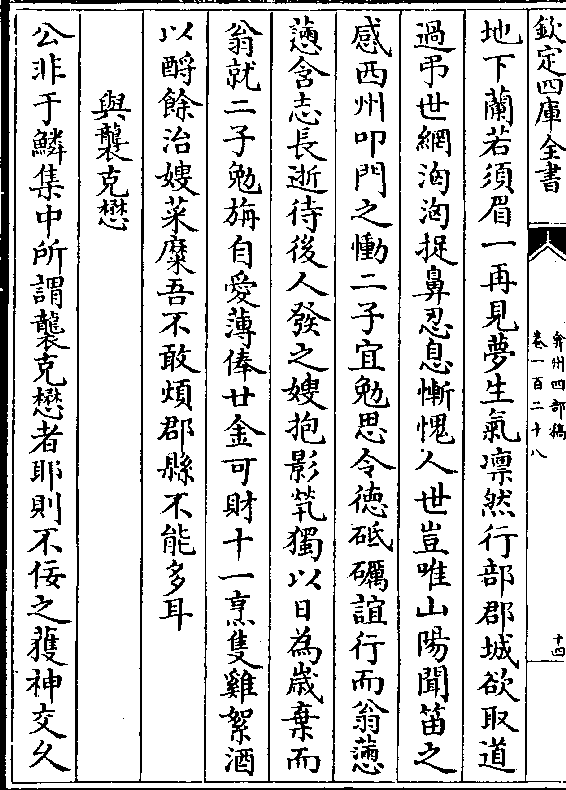 欽定四庫全書
弇州四部稿
卷一百二十八
十四
地下蘭若須眉一再見夢生氣凛然行部郡城欲取道
過弔世網洶洶捉鼻忍息慚愧人世豈唯山陽聞笛之
感西州叩門之慟二子宜勉思令徳砥礪誼行而翁薳
薳含志長逝待後人發之嫂抱影煢獨以日為歲棄而
翁就二子勉旃自愛薄俸廿金可財十一烹隻雞絮酒
以酹餘治嫂菜糜吾不敢煩郡縣不能多耳
與龔克懋
公非于鱗集中所謂龔克懋者耶則不佞之獲神交久